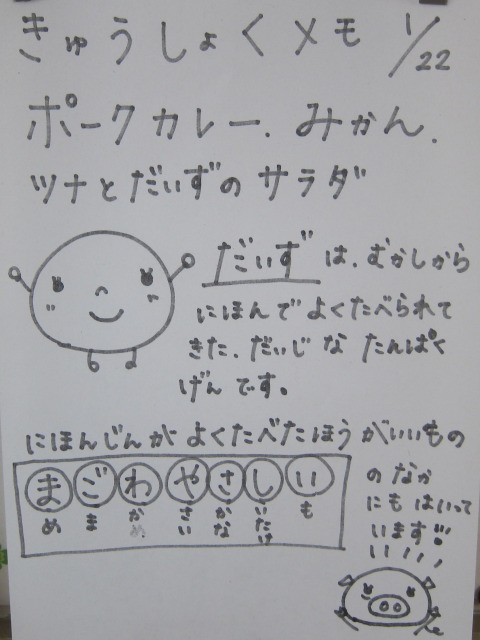 きゅうしょくメモ 1/22
ポークカレー、みかん、
ツナとだいずのサラダ
だいずは、むかしから
にほんでよくたべられて
きた、だいじなたんぱく
げんです。
にほんじんがよくたべたほうがいいもの
まごわやさしい
め ま かめ さい かな いたけ も
のなか
にもはいって
います!!